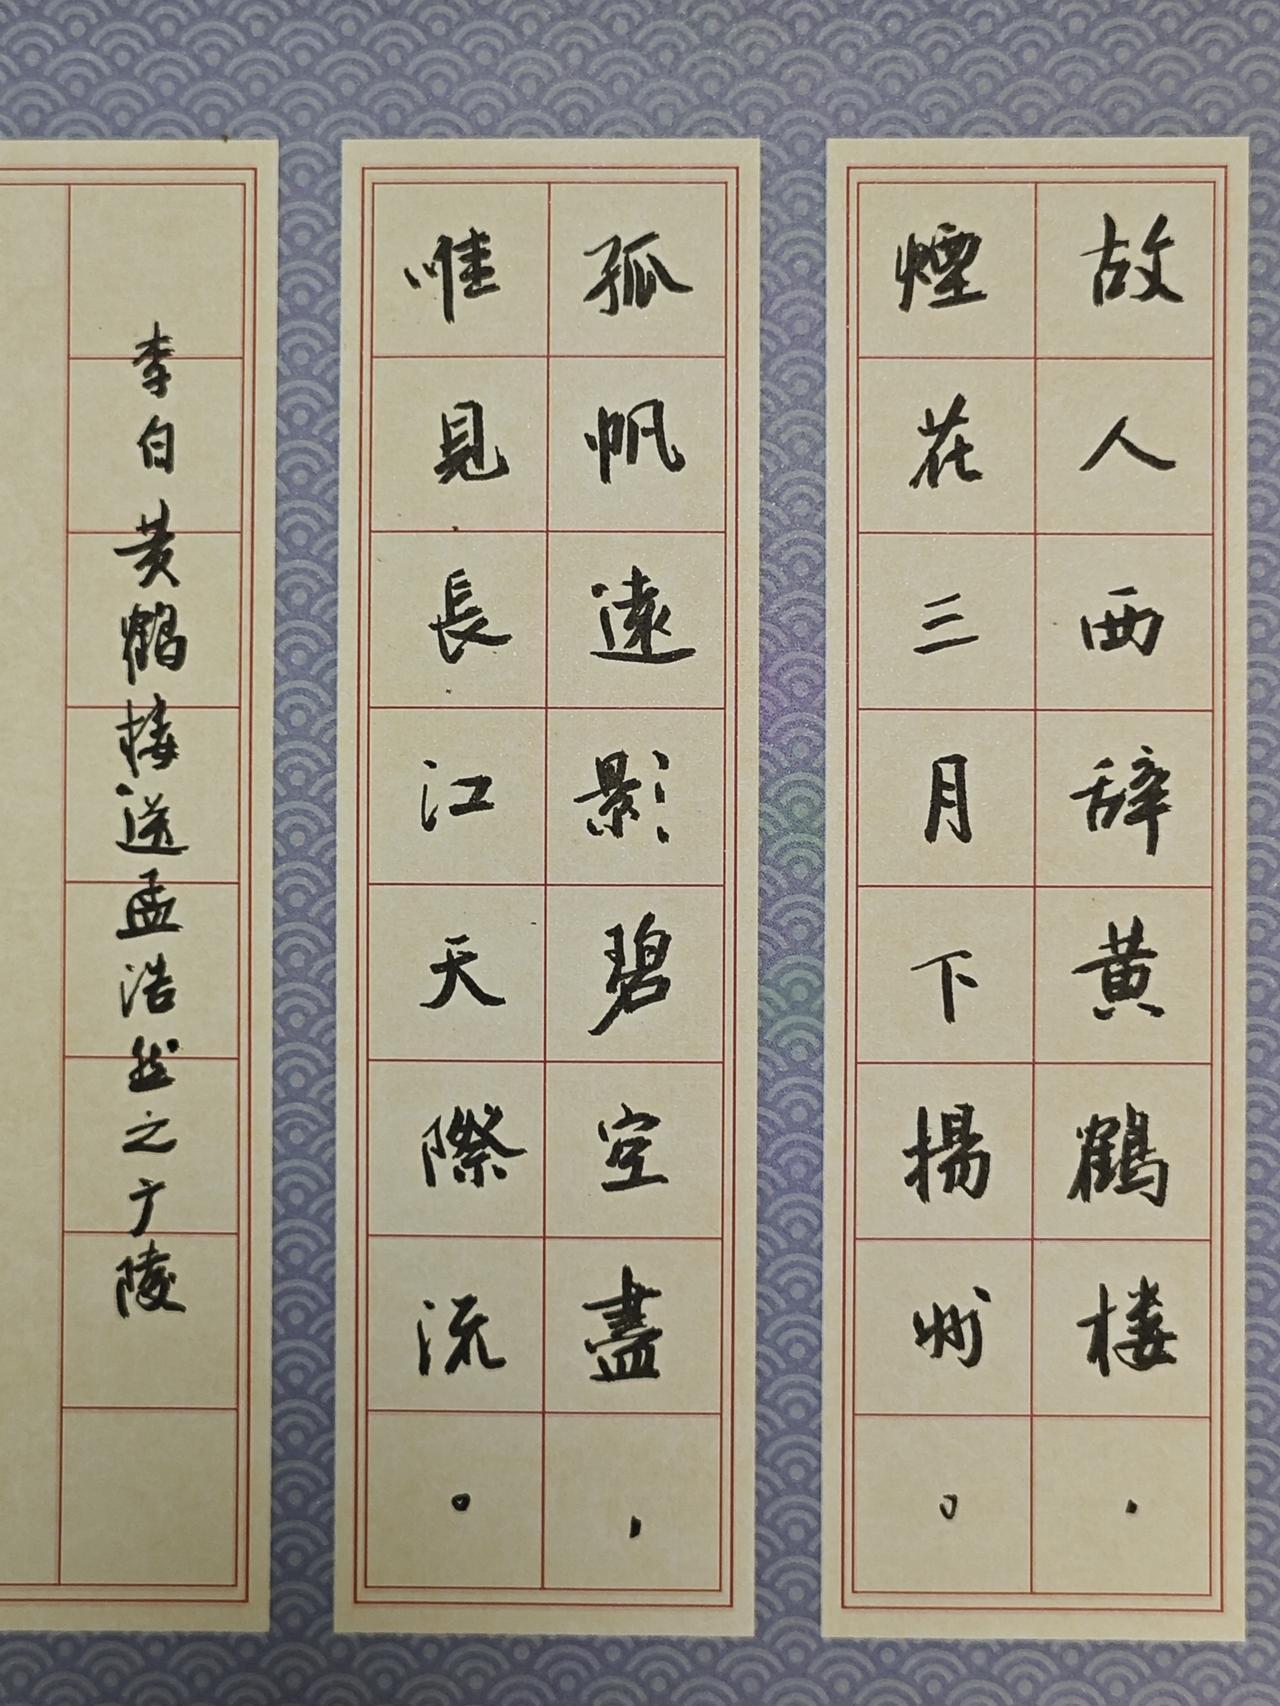 故人西辞黄鶴楼，
煙花三月下揚州。
孤帆遠影碧空盡，
唯見長江天際流。
李白黄鶴楼送孟浩然之广陵